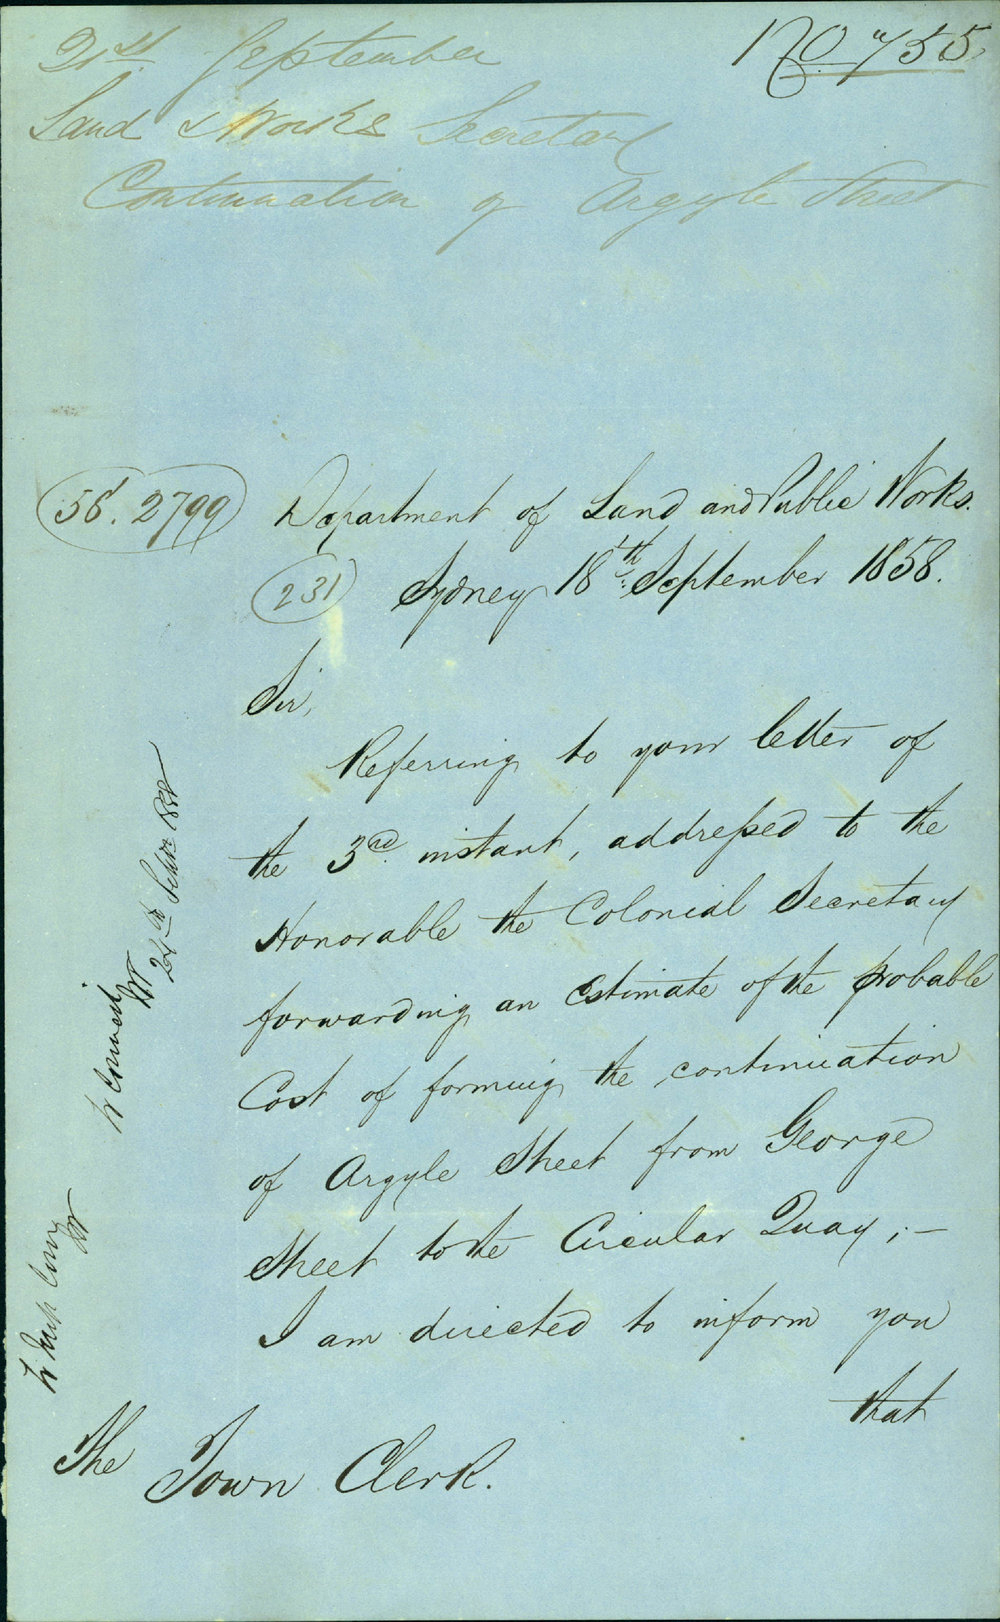 21st September
No 755
Land & Works Secretary
Continuation of Argyle Street
58. 2799
Department of Land and Public Works.
231
Sydney 18th September 1858.
Sir,
Referring to your letter of
the 3rd instant, addressed to the
Honorable the Colonial Secretary
forwarding an Estimate of the probable
Cost of forming the continuation
of Argyle Street from George
Street to the Circular Quay; —
I am directed to inform you
that
The Town Clerk.
To Council
24th Septr 1858